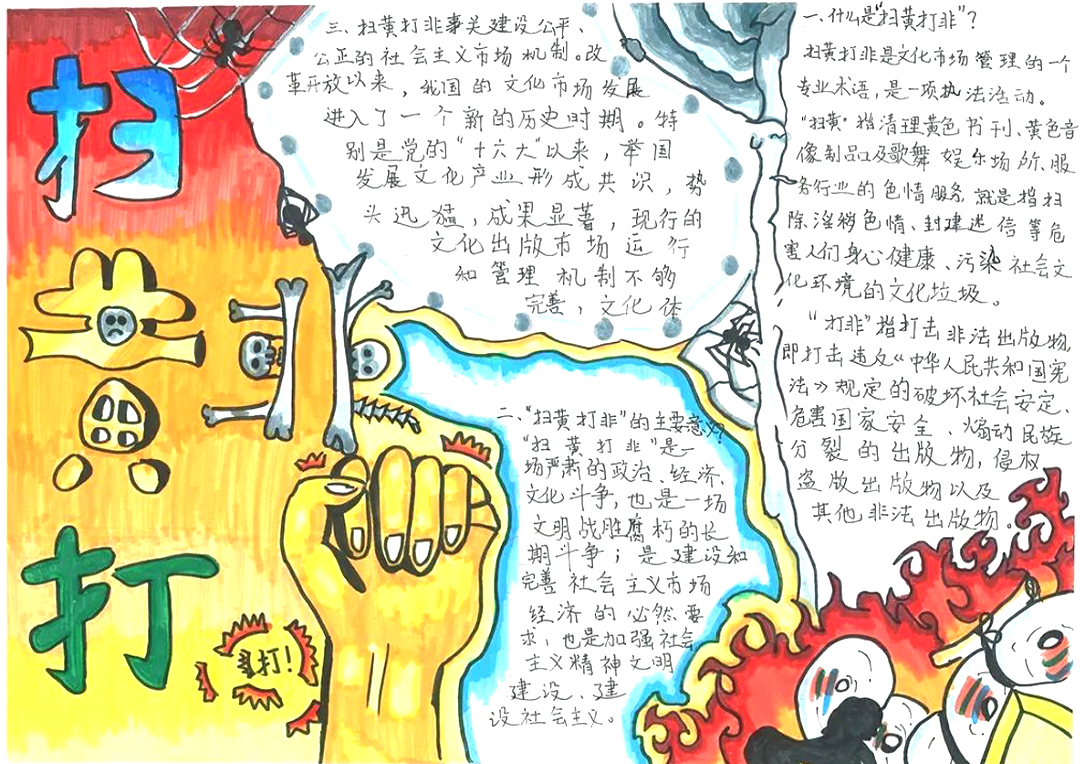 扫
黄
打
非
打!
一、什么是"扫黄打非"?
扫黄打非是文化市场管理的一个
专业术语,是一项执法活动。
"扫黄"指清理黄色书刊、黄色音
像制品以及歌舞娱乐场所、服
务行业的色情服务,就是指扫
除淫秽色情、封建迷信等危
害人们身心健康、污染社会文
化环境的文化垃圾。
"打非"指打击非法出版物,
即打击违反《中华人民共和国宪
法》规定的破坏社会安定、
危害国家安全、煽动民族
分裂的出版物,侵权
盗版出版物以及
其他非法出版物。
二、"扫黄打非"的主要意义?
"扫黄打非"是一
场严肃的政治、经济、
文化斗争,也是一场
文明战胜腐朽的长
期斗争;是建设和
完善社会主义市场
经济的必然要
求,也是加强社会
主义精神文明
建设、建
设社会主义。
三、扫黄打非事关建设公平、
公正的社会主义市场机制。改
革开放以来,我国的文化市场发展
进入了一个新的历史时期。特
别是党的"十六大"以来,举国
发展文化产业形成共识,势
头迅猛,成果显著,现行的
文化出版市场运行
和管理机制不够
完善,文化体